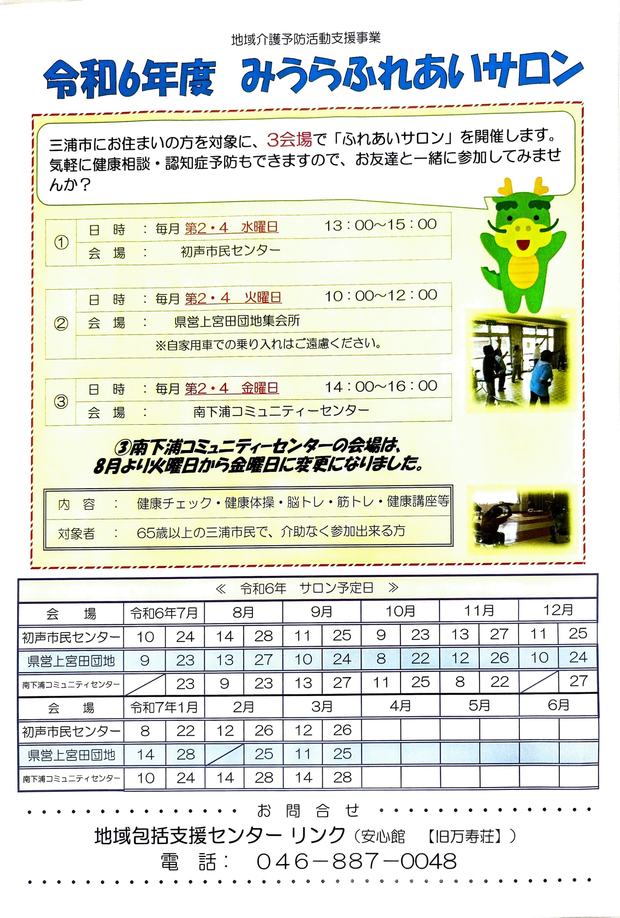 地域介護予防活動支援事業
令和6年度 みうらふれあいサロン
三浦市にお住まいの方を対象に、3会場で「ふれあいサロン」を開催します。
気軽に健康相談・認知症予防もできますので、お友達と一緒に参加してみませ
んか?
① 日 時 : 毎月 第2・4 水曜日 13:00~15:00
会 場 : 初声市民センター
② 日 時 : 毎月 第2・4 火曜日 10:00~12:00
会 場 : 県営上宮田団地集会所
※自家用車での乗り入れはご遠慮ください。
③ 日 時 : 毎月 第2・4 金曜日 14:00~16:00
会 場 : 南下浦コミュニティーセンター
③南下浦コミュニティーセンターの会場は、
8月より火曜日から金曜日に変更になりました。
内 容 : 健康チェック・健康体操・脳トレ・筋トレ・健康講座等
対象者 : 65歳以上の三浦市民で、介助なく参加出来る方
≪ 令和6年 サロン予定日 ≫
会 場 令和6年7月 8月 9月 10月 11月 12月
初声市民センター 10 24 14 28 11 25 9 23 13 27 11 25
県営上宮田団地 9 23 13 27 10 24 8 22 12 26 10 24
南下浦コミュニティセンター 23 9 23 13 27 11 25 8 22 27
会 場 令和7年1月 2月 3月 4月 5月 6月
初声市民センター 8 22 12 26 12 26
県営上宮田団地 14 28 25 11 25
南下浦コミュニティセンター 10 24 14 28 14 28
お 問 合 せ
地域包括支援センター リンク(安心館 【旧万寿荘】)
電 話: 046-887-0048